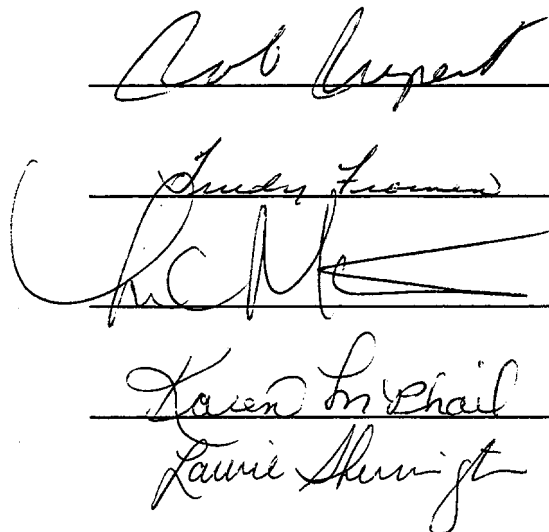 Rob Rupert
Trudy Fromm
Karen McPhail
Laurie Sherrington